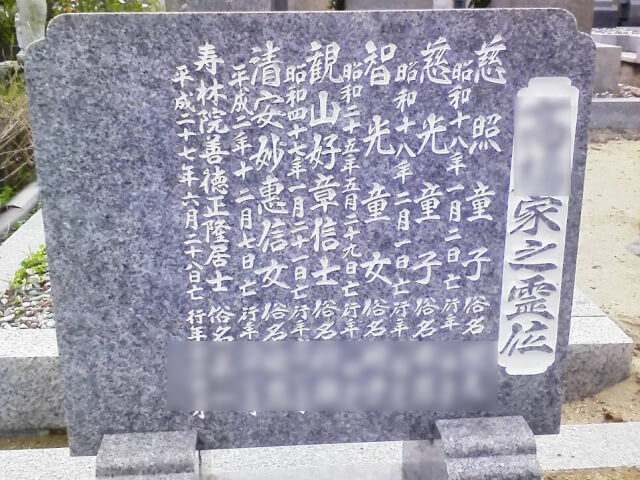 家之霊位
慈照童子 俗名
昭和十八年一月二日亡 行年
慈光童子 俗名
昭和十八年二月一日亡 行年
智光童女 俗名
昭和二十五年五月二十九日亡 行年
観山好章信士 俗名
昭和四十七年一月二十一日亡 行年
清安妙惠信女 俗名
平成二年十二月七日亡 行年
寿林院善徳正隆居士 俗名
平成二十七年六月二十八日亡 行年